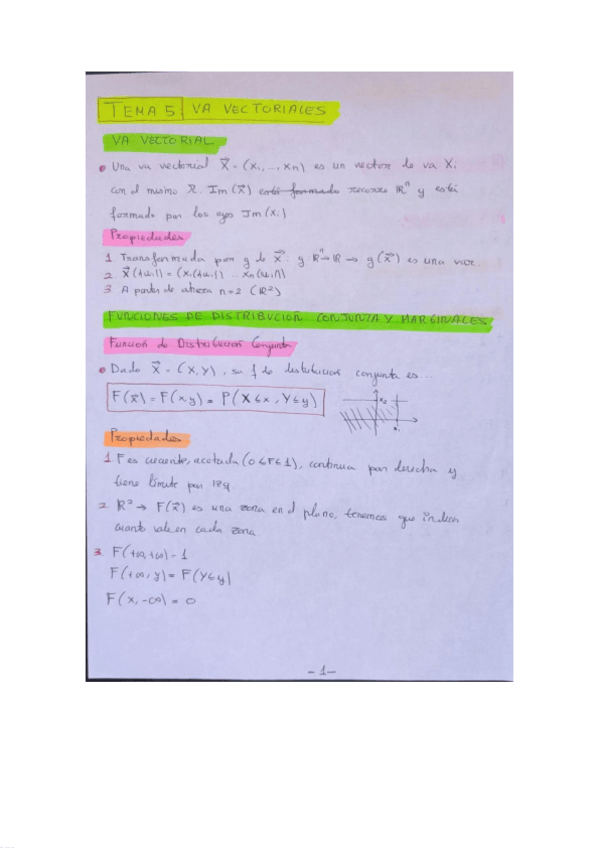 TEMA 5 VA VECTORIALES
VA VECTORIAL
• Una va vectorial X⃗ = (X₁, ..., Xn) es un vector de va Xᵢ
con el mismo Im(X⃗) está formado recorre ℝⁿ y está
formado por los ejes Im(Xᵢ)
Propiedades
1. Transformada por g de X⃗: g ℝⁿ→ℝ → g(X⃗) es una var.
2. X⃗
3. A partir de ahora n=2 (ℝ²)
FUNCIONES DE DISTRIBUCIÓN CONJUNTA Y MARGINALES
Función de Distribución Conjunta
• Dado X⃗ = (X,Y), su f de distribución conjunta es...
F(x⃗) = F(x,y) = P(X≤x, Y≤y)
Propiedades
1. F es creciente, acotada (0≤F≤1), continua por derecha y
tiene límite por izq.
2. ℝ² → F(x⃗) es una zona en el plano, tenemos que indicar
cuanto vale en cada zona.
3. F(+∞,+∞) = 1
F(+∞, y) = F(Y≤y)
F(x, -∞) = 0
-1-